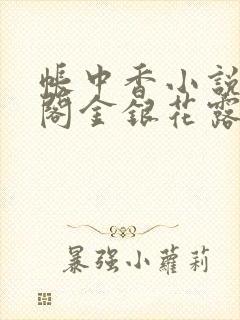 帳中香小說
閣金銀花露
暴強小蘿莉